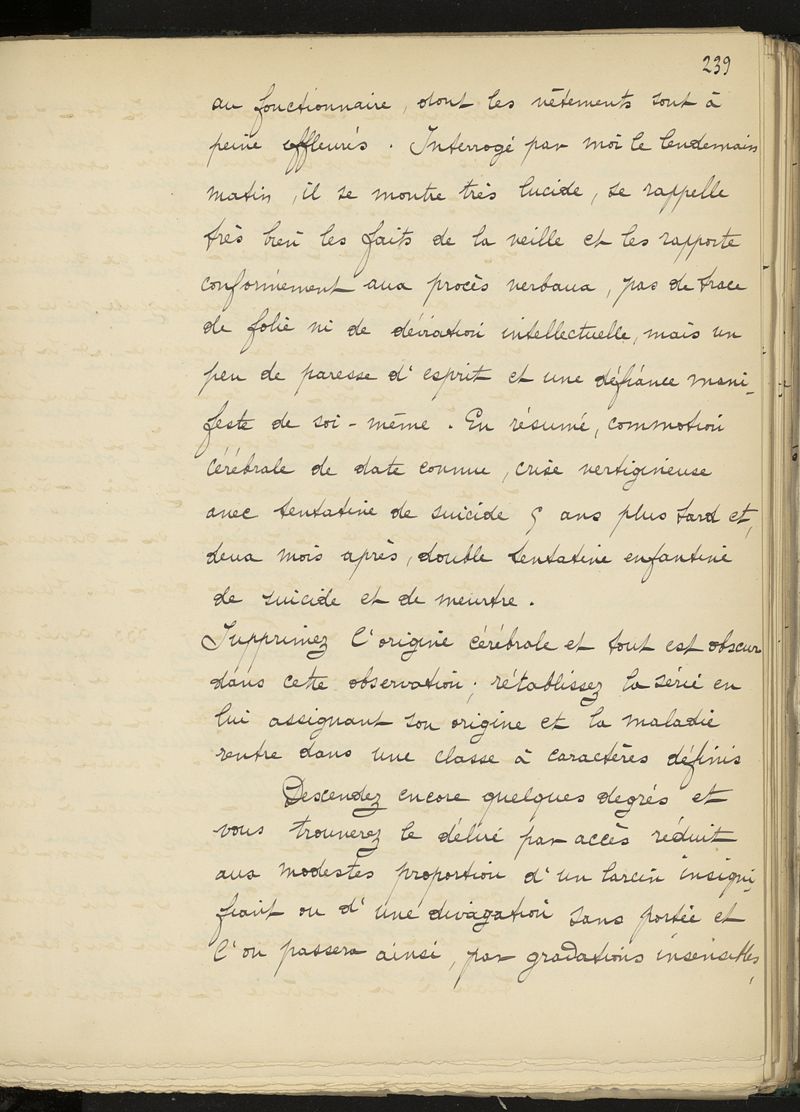 239
au fonctionnaire, dont les vêtements sont à
peine effleurés. Interrogé par moi le lendemain
matin, il se montre très lucide, se rappelle
très bien les faits de la veille et les rapporte
conformément aux procès verbaux, pas de trace
de folie ni de déviation intellectuelle, mais un
peu de paresse d'esprit et une défiance mani-
feste de soi-même. En résumé, commotion
cérébrale de date connue, crise vertigineuse
avec tentative de suicide 5 ans plus tard et,
deux mois après, double tentative enfantine
de suicide et de meurtre.
Supprimez l'origine cérébrale et tout est obscur
dans cette observation; rétablissez la série en
lui assignant son origine et la maladie
rentre dans une classe à caractères définis
Descendez encore quelques degrés et
vous trouverez le délire par accès réduit
aux modestes proportion d'un larcin insigni-
fiant ou d'une divagation sans portée et
l'on passera ainsi, par gradations insensibles,